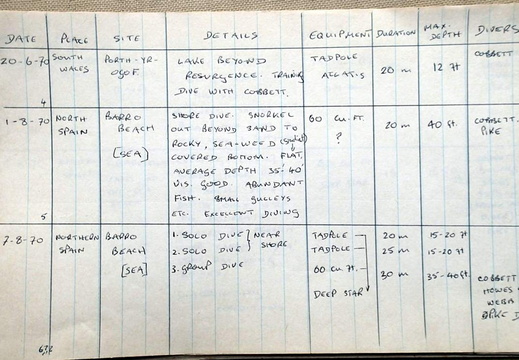 DATE PLACE SITE DETAILS EQUIPMENT DURATION MAX. DEPTH DIVERS
20-6-70 SOUTH WALES PORTH-YR-OGOF
LAKE BEYOND
RESURGENCE. TRAINING
DIVE WITH COBBETT.
TADPOLE
20 m 12 ft COBBETT
4
1-8-70 NORTH SPAIN BARRO BEACH [SEA]
SHORE DIVE. SNORKEL
OUT BEYOND SAND TO
ROCKY, SEA-WEED
COVERED BOTTOM. FLAT,
AVERAGE DEPTH 35'-40'
VIS. GOOD. ABUNDANT
FISH. SMALL GULLEYS
ETC. EXCELLENT DIVING
60 CU. FT.
?
20 m 40 ft. COBBETT.
PIKE
5
2-8-70 NORTHERN SPAIN BARRO BEACH [SEA]
1. SOLO DIVE } NEAR
2. SOLO DIVE } SHORE
3. GROUP DIVE
TADPOLE 20 m 15-20 ft
TADPOLE 25 m 15-20 ft
60 CU. ft. 30 m 35-40 ft.
DEEP STAR
COBBETT
HOWES
WEBB